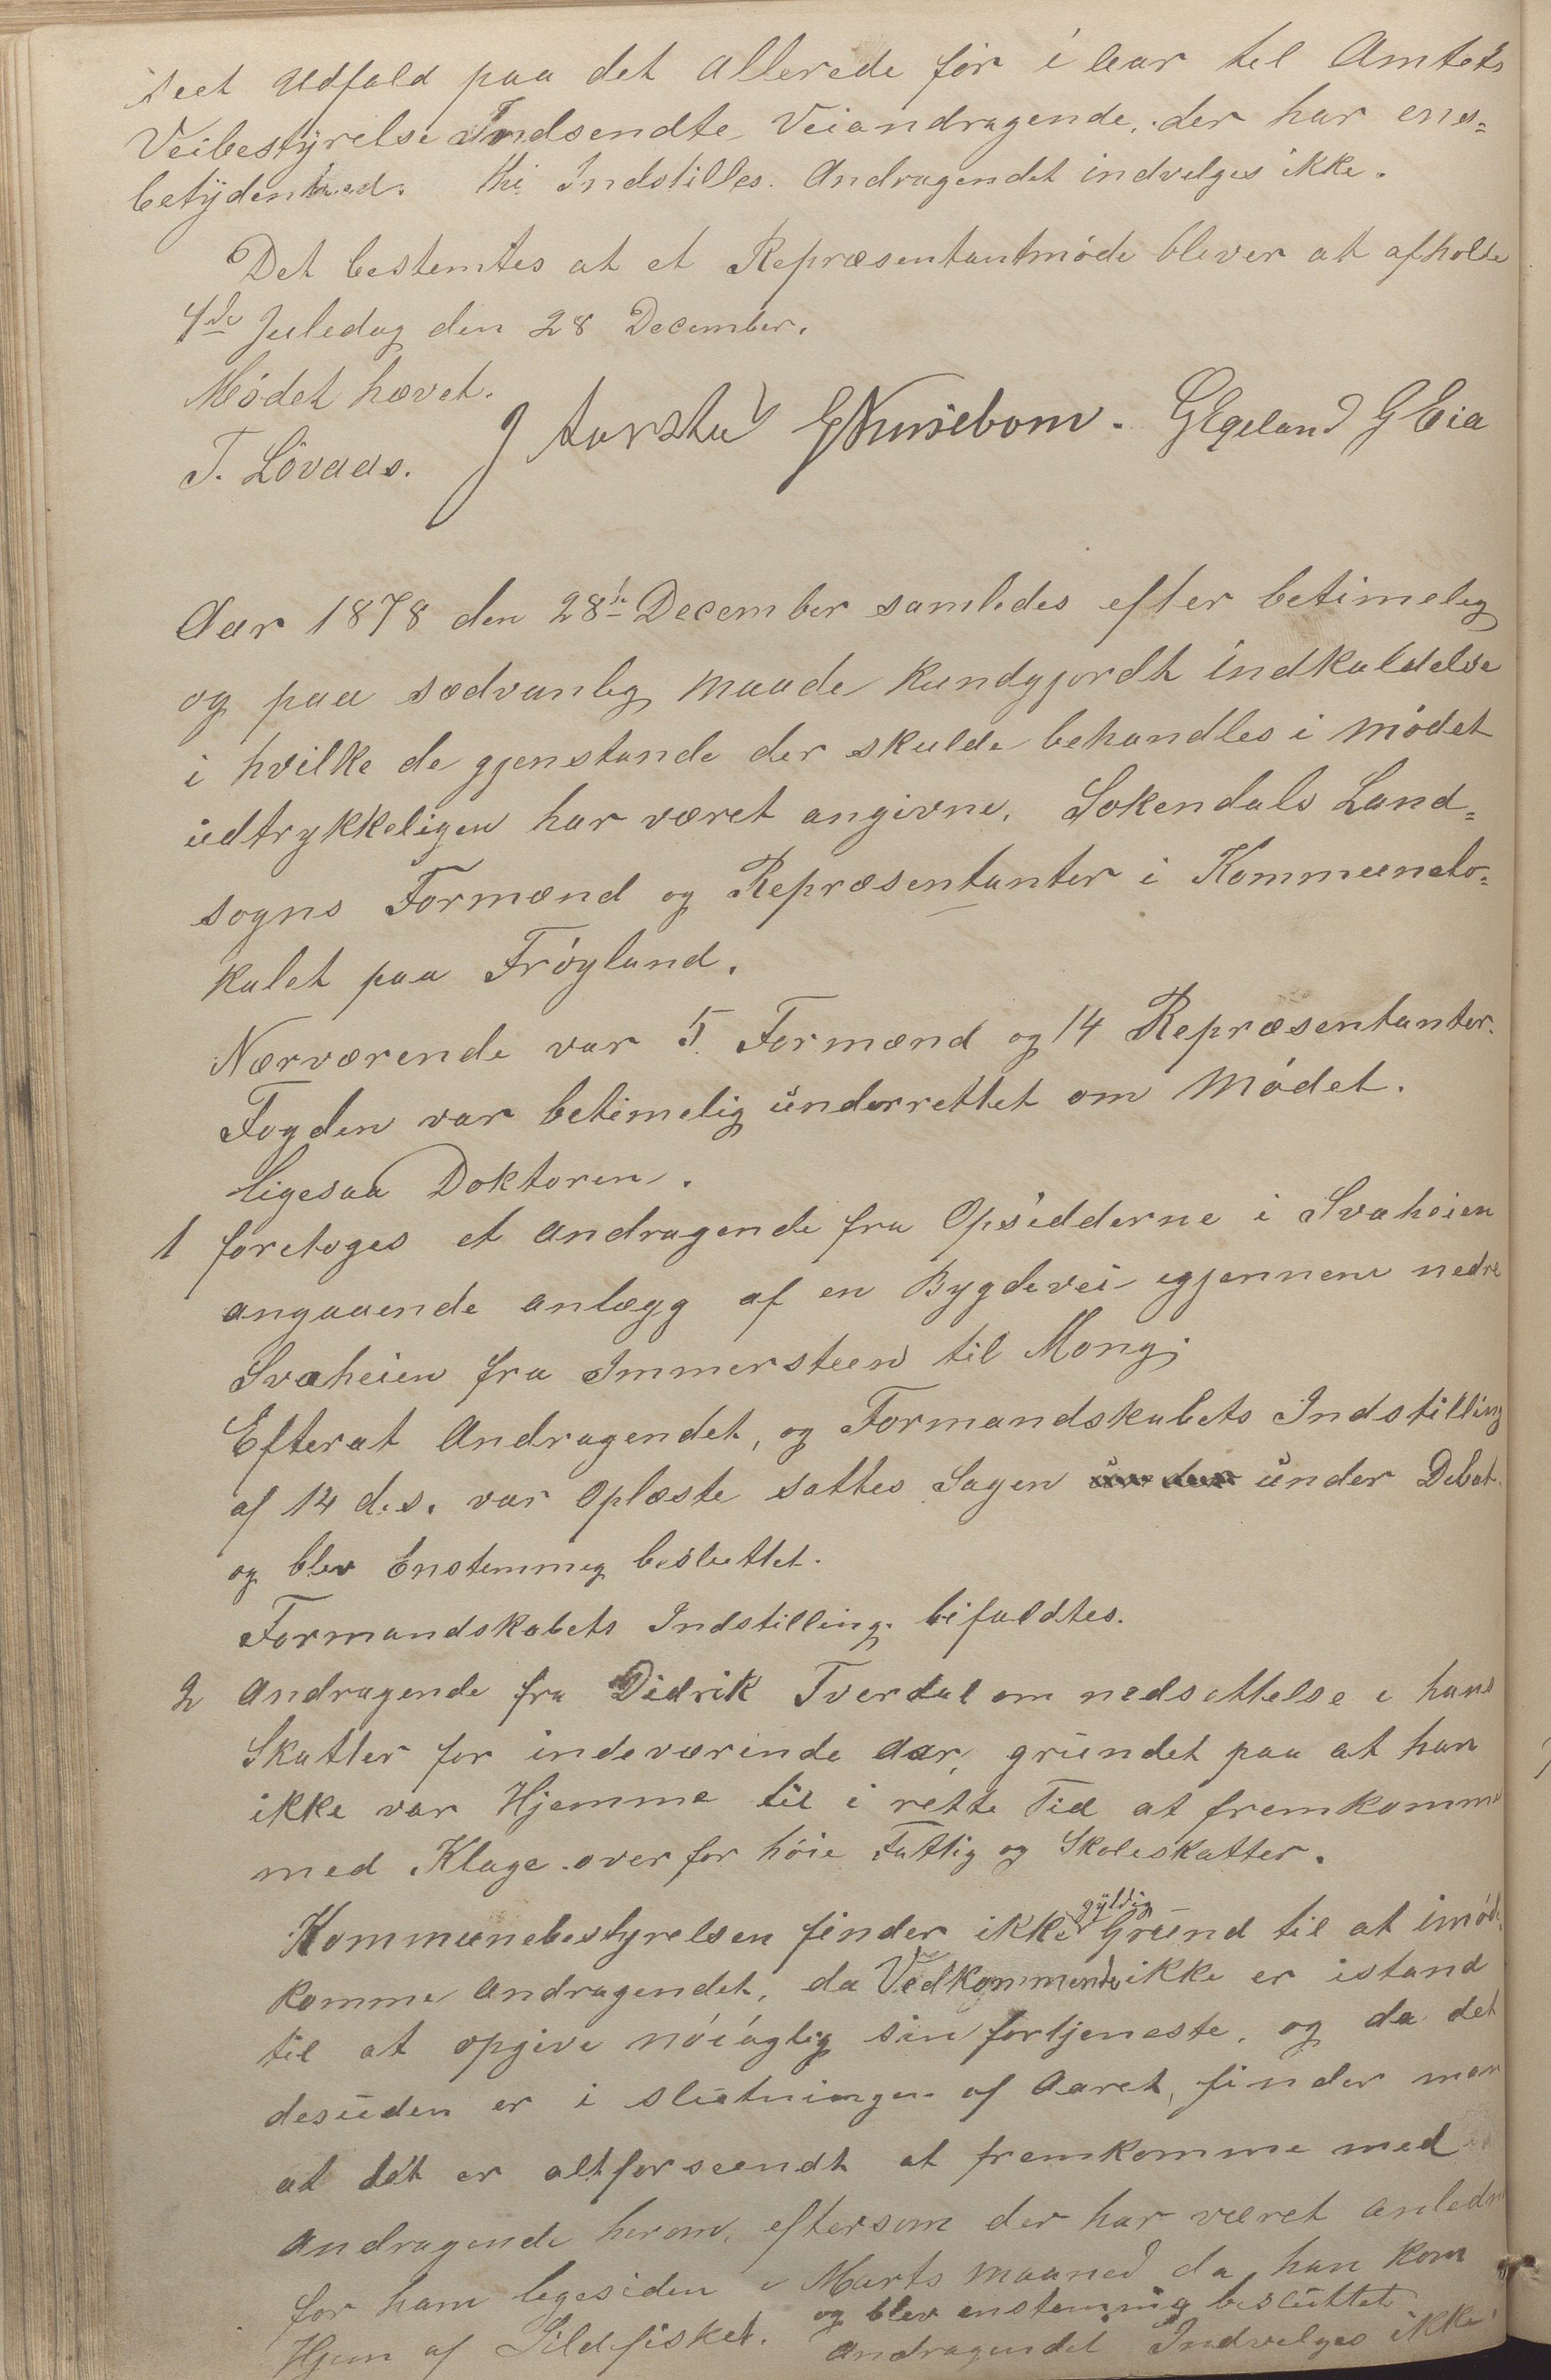 seet Udfald paa det allerede før i Aar til Amtets
Veibestyrelse Indsendte Veiandragende, der har ens=
betydenhed. thi Indstilles. Andragendet indvelges ikke.
Det bestemtes at et Repræsentantmøde bliver at afholde
4de Juledag den 28 December.
Mødet hævet.
T. Løvaas. GEgeland G Eia
Aar 1878 den 28de December samledes efter betimelig
og paa sædvanlig Maade Kundgjordt indkaldelse
i hvilke de gjenstande der skulde behandles i Mødet
udtrykkeligen har været angivne. Sokendals Land=
sogns Formænd og Repræsentanter i Kommunelo=
kalet paa Frøyland.
Nærværende var 5 Formænd og 14 Repræsentanter.
Fogden var betimelig underrettet om Mødet.
ligesaa Doktoren.
1 foretoges et andragende fra Opsidderne i Svaheien
angaaende anlægg af en Bygdevei igjennem nedre
Svaheien fra Immersteen til Mong;
Efterat Andragendet, og Formandskabets Indstilling
af 14 d.s. var Oplæste sattes Sagen under under Debat
og blev Enstemmig besluttet.
Formandskabets Indstilling bifaldtes.
2 Andragende fra Didrik Tverdal om nedsettelse i hans
Skatter for indeværende Aar, grundet paa at han
ikke var Hjemme til i rette Tid at fremkomme
med Klage over for høie Fattig og Skoleskatter.
Kommunebestyrelsen finder ikke gyldig Grund til at imøde
komme Andragendet, da Vedkommende ikke er istand
til at opgive nøiagtig sin fortjeneste, og da det
desuden er i slutningen af Aaret, finder man
at det er altforseendt at fremkomme med
Andragende herom, eftersom der har været Anledn
for ham legesiden i Marts Maaned da han Kom
Hjem af Sildfisket. og blev enstemmig besluttet
Andragendet Indvelges ikke